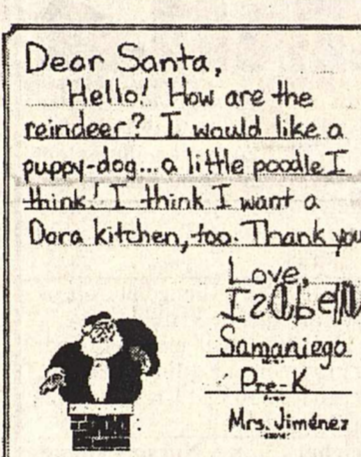 Dear Santa,
Hello! How are the
reindeer? I would like a
puppy-dog...a little poodle I
think! I think I want a
Dora kitchen, too. Thank you
Love,
Isabella
Samaniego
Pre-K
Mrs. Jiménez